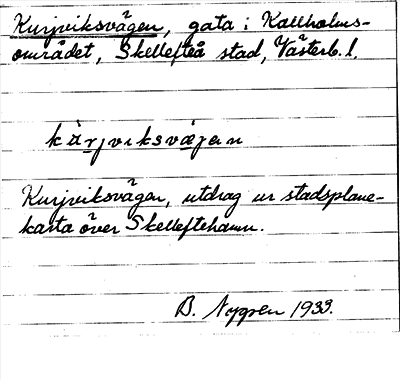 Kurjviksvägen, gata i Kallholms-
området, Skellefteå stad, Västerb. l.
kürjviksvæjen
Kurjviksvägen, utdrag ur stadsplane-
karta över Skelleftehamn.
B. Nygren 1933.